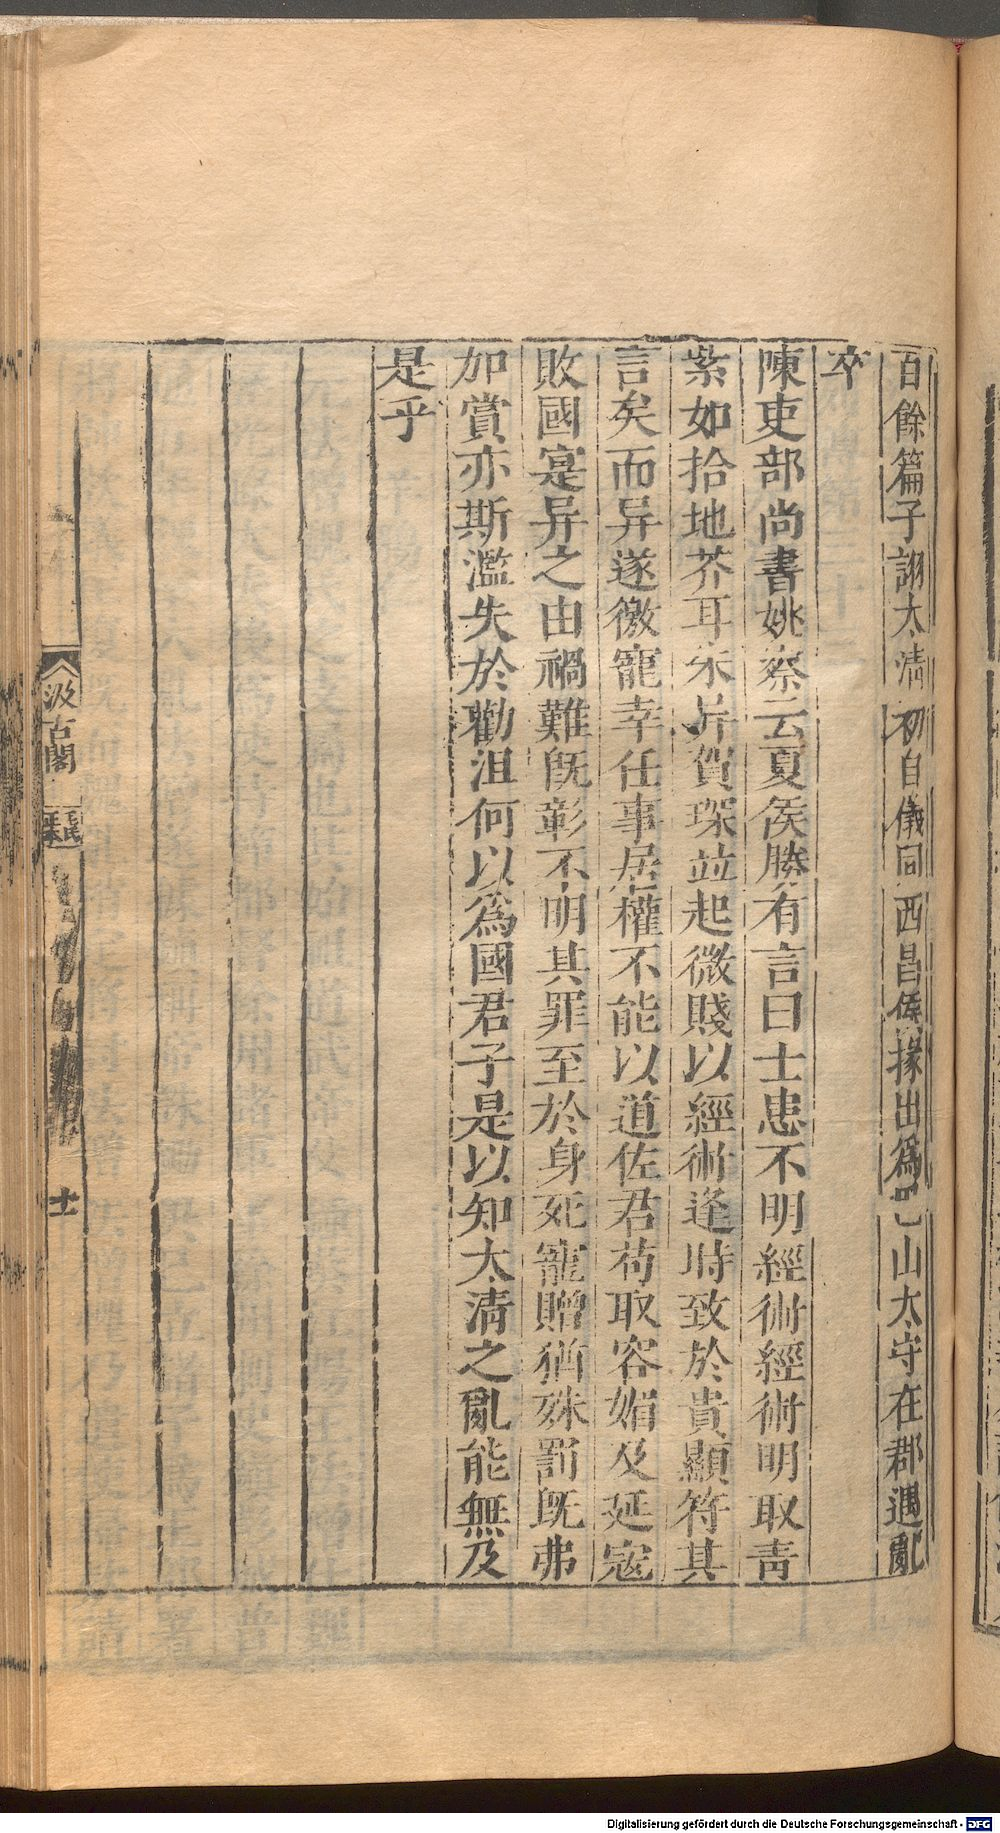 百餘篇子詡太淸初自儀同西昌侯掾出爲巴山太守在郡遇亂
卒
陳吏部尚書姚察云夏侯勝有言曰士患不明經術經術明取靑
紫如拾地芥耳朱异賀琛竝起微賤以經術逢時致於貴顯符其
言矣而异遂徼寵幸任事居權不能以道佐君苟取容媚及延寇
敗國寔异之由禍難旣彰不明其罪至於身死寵贈猶殊罰旣弗
加賞亦斯濫失於勸沮何以爲國君子是以知太淸之亂能無及
是乎
汲古閣
毛氏
正本
十一
Digitalisierung gefördert durch die Deutsche Forschungsgemeinschaft - DFG